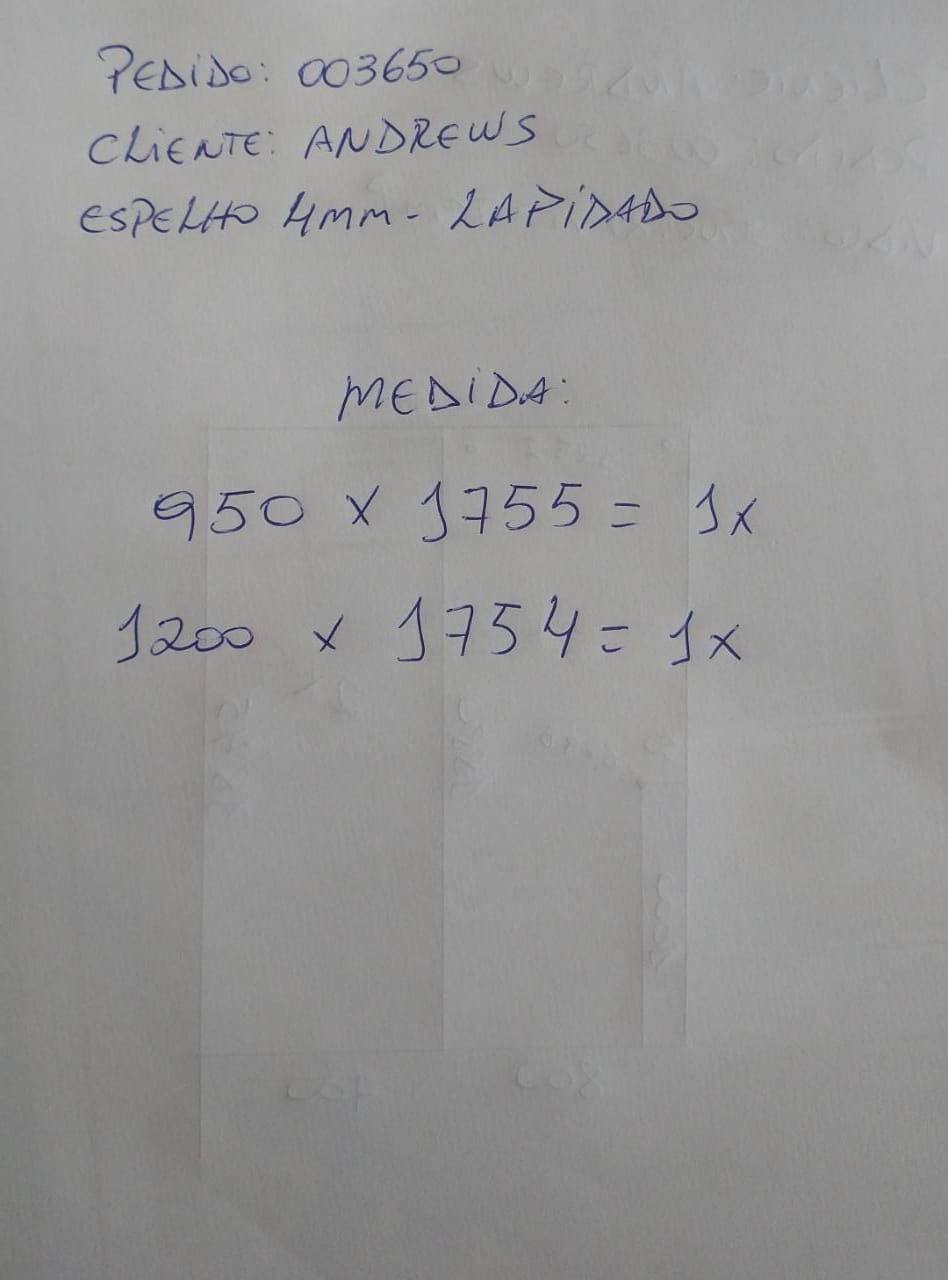 PEDIDO: 003650
CLIENTE: ANDREWS
ESPELHO 4MM - LAPIDADO
MEDIDA:
950 x 1755 = 1x
1200 x 1754 = 1x